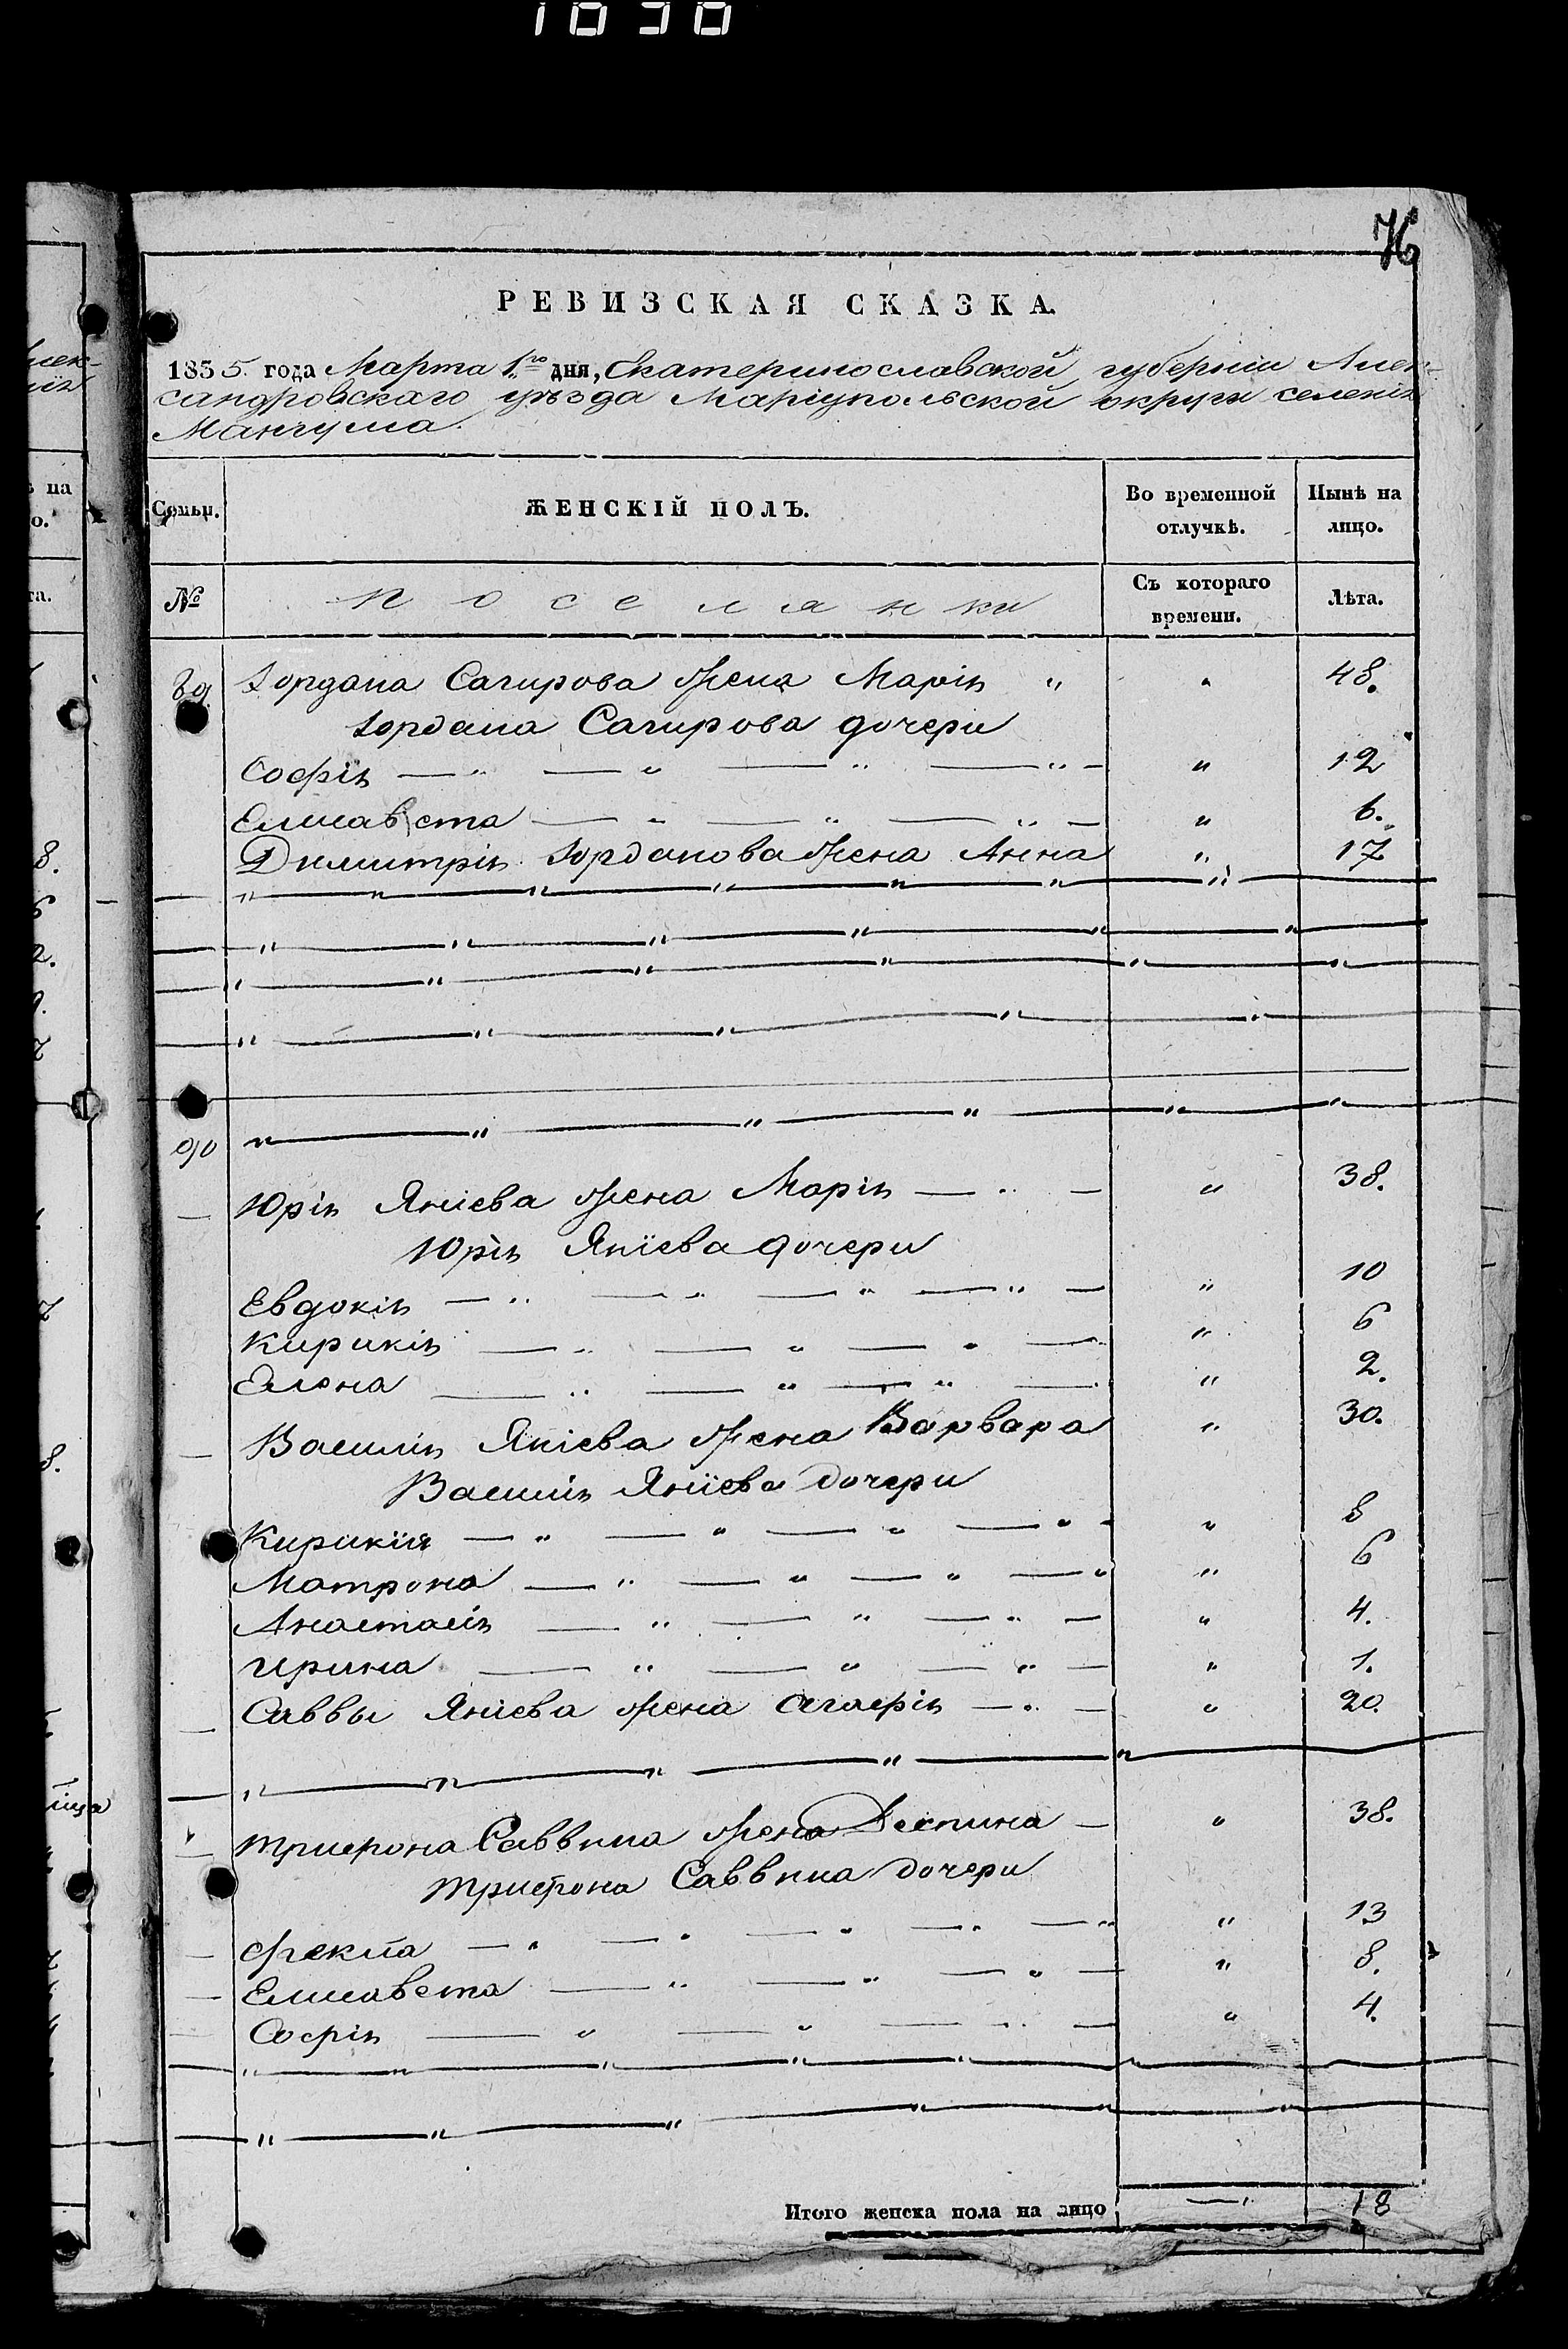 1030
76
РЕВИЗСКАЯ СКАЗКА.
1835 года Марта 1го дня, Екатеринославской губерніи Алек-
сандровскаго уѣзда Маріупольской округи селенія
Мангуша.
Семьи. ЖЕНСКІЙ ПОЛЪ. Во временной отлучкѣ. Нынѣ на лицо.
№ Поселянки Съ котораго времени. Лѣта.
89 Іордана Сагирова жена Марія " " 48.
Іордана Сагирова дочери
Софія " 12
Елисавета " 6.
Димитрія Іорданова жена Анна " 17
90
Юрія Яніева жена Марія " 38.
Юрія Яніева дочери
Евдокія " 10
Кирикія " 6
Елена " 2.
Василія Яніева жена Варвара " 30.
Василія Яніева дочери
Кирикія " 8
Матрона " 6
Анастасія " 4.
Ирина " 1.
Саввы Яніева жена Агафія " 20.
Трифона Саввина жена Деспина " 38.
Трифона Саввина дочери
Фекла " 13
Елисавета " 8.
Софія " 4.
Итого женска пола на лицо — 18